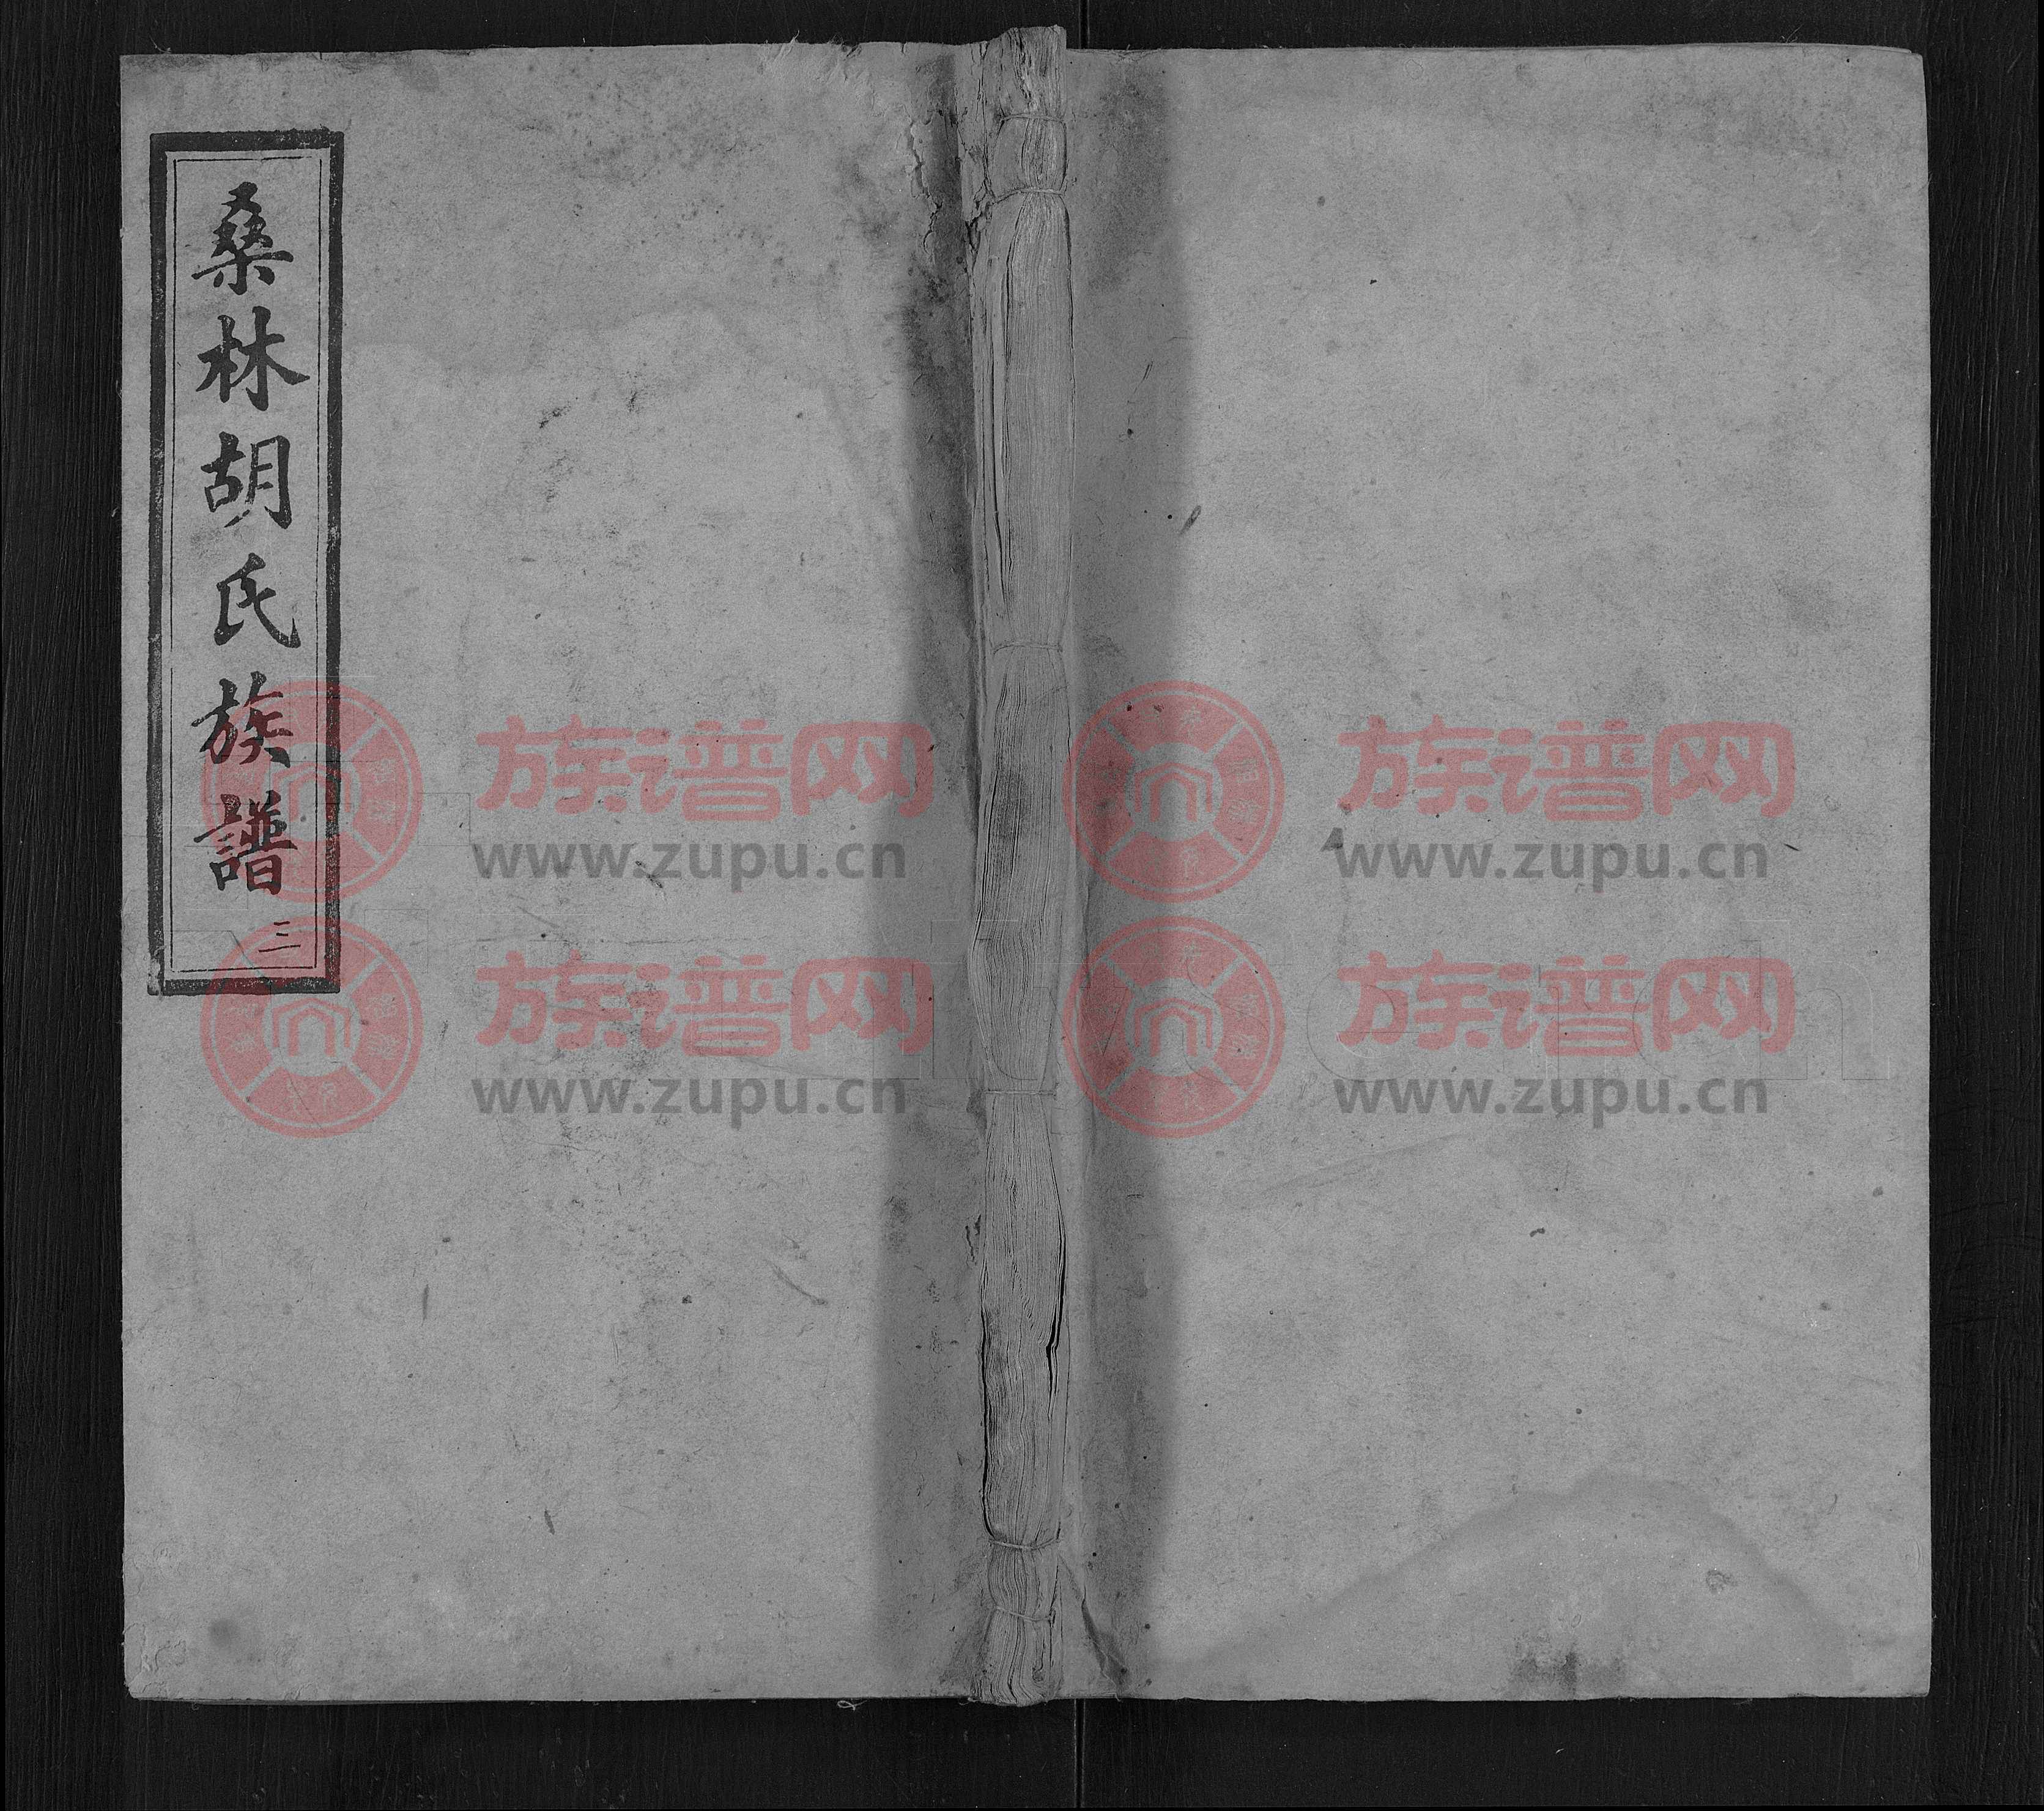 桑林胡氏族譜 三
族谱网
www.zupu.cn
族谱网
www.zupu.cn
族谱网
www.zupu.cn
族谱网
www.zupu.cn